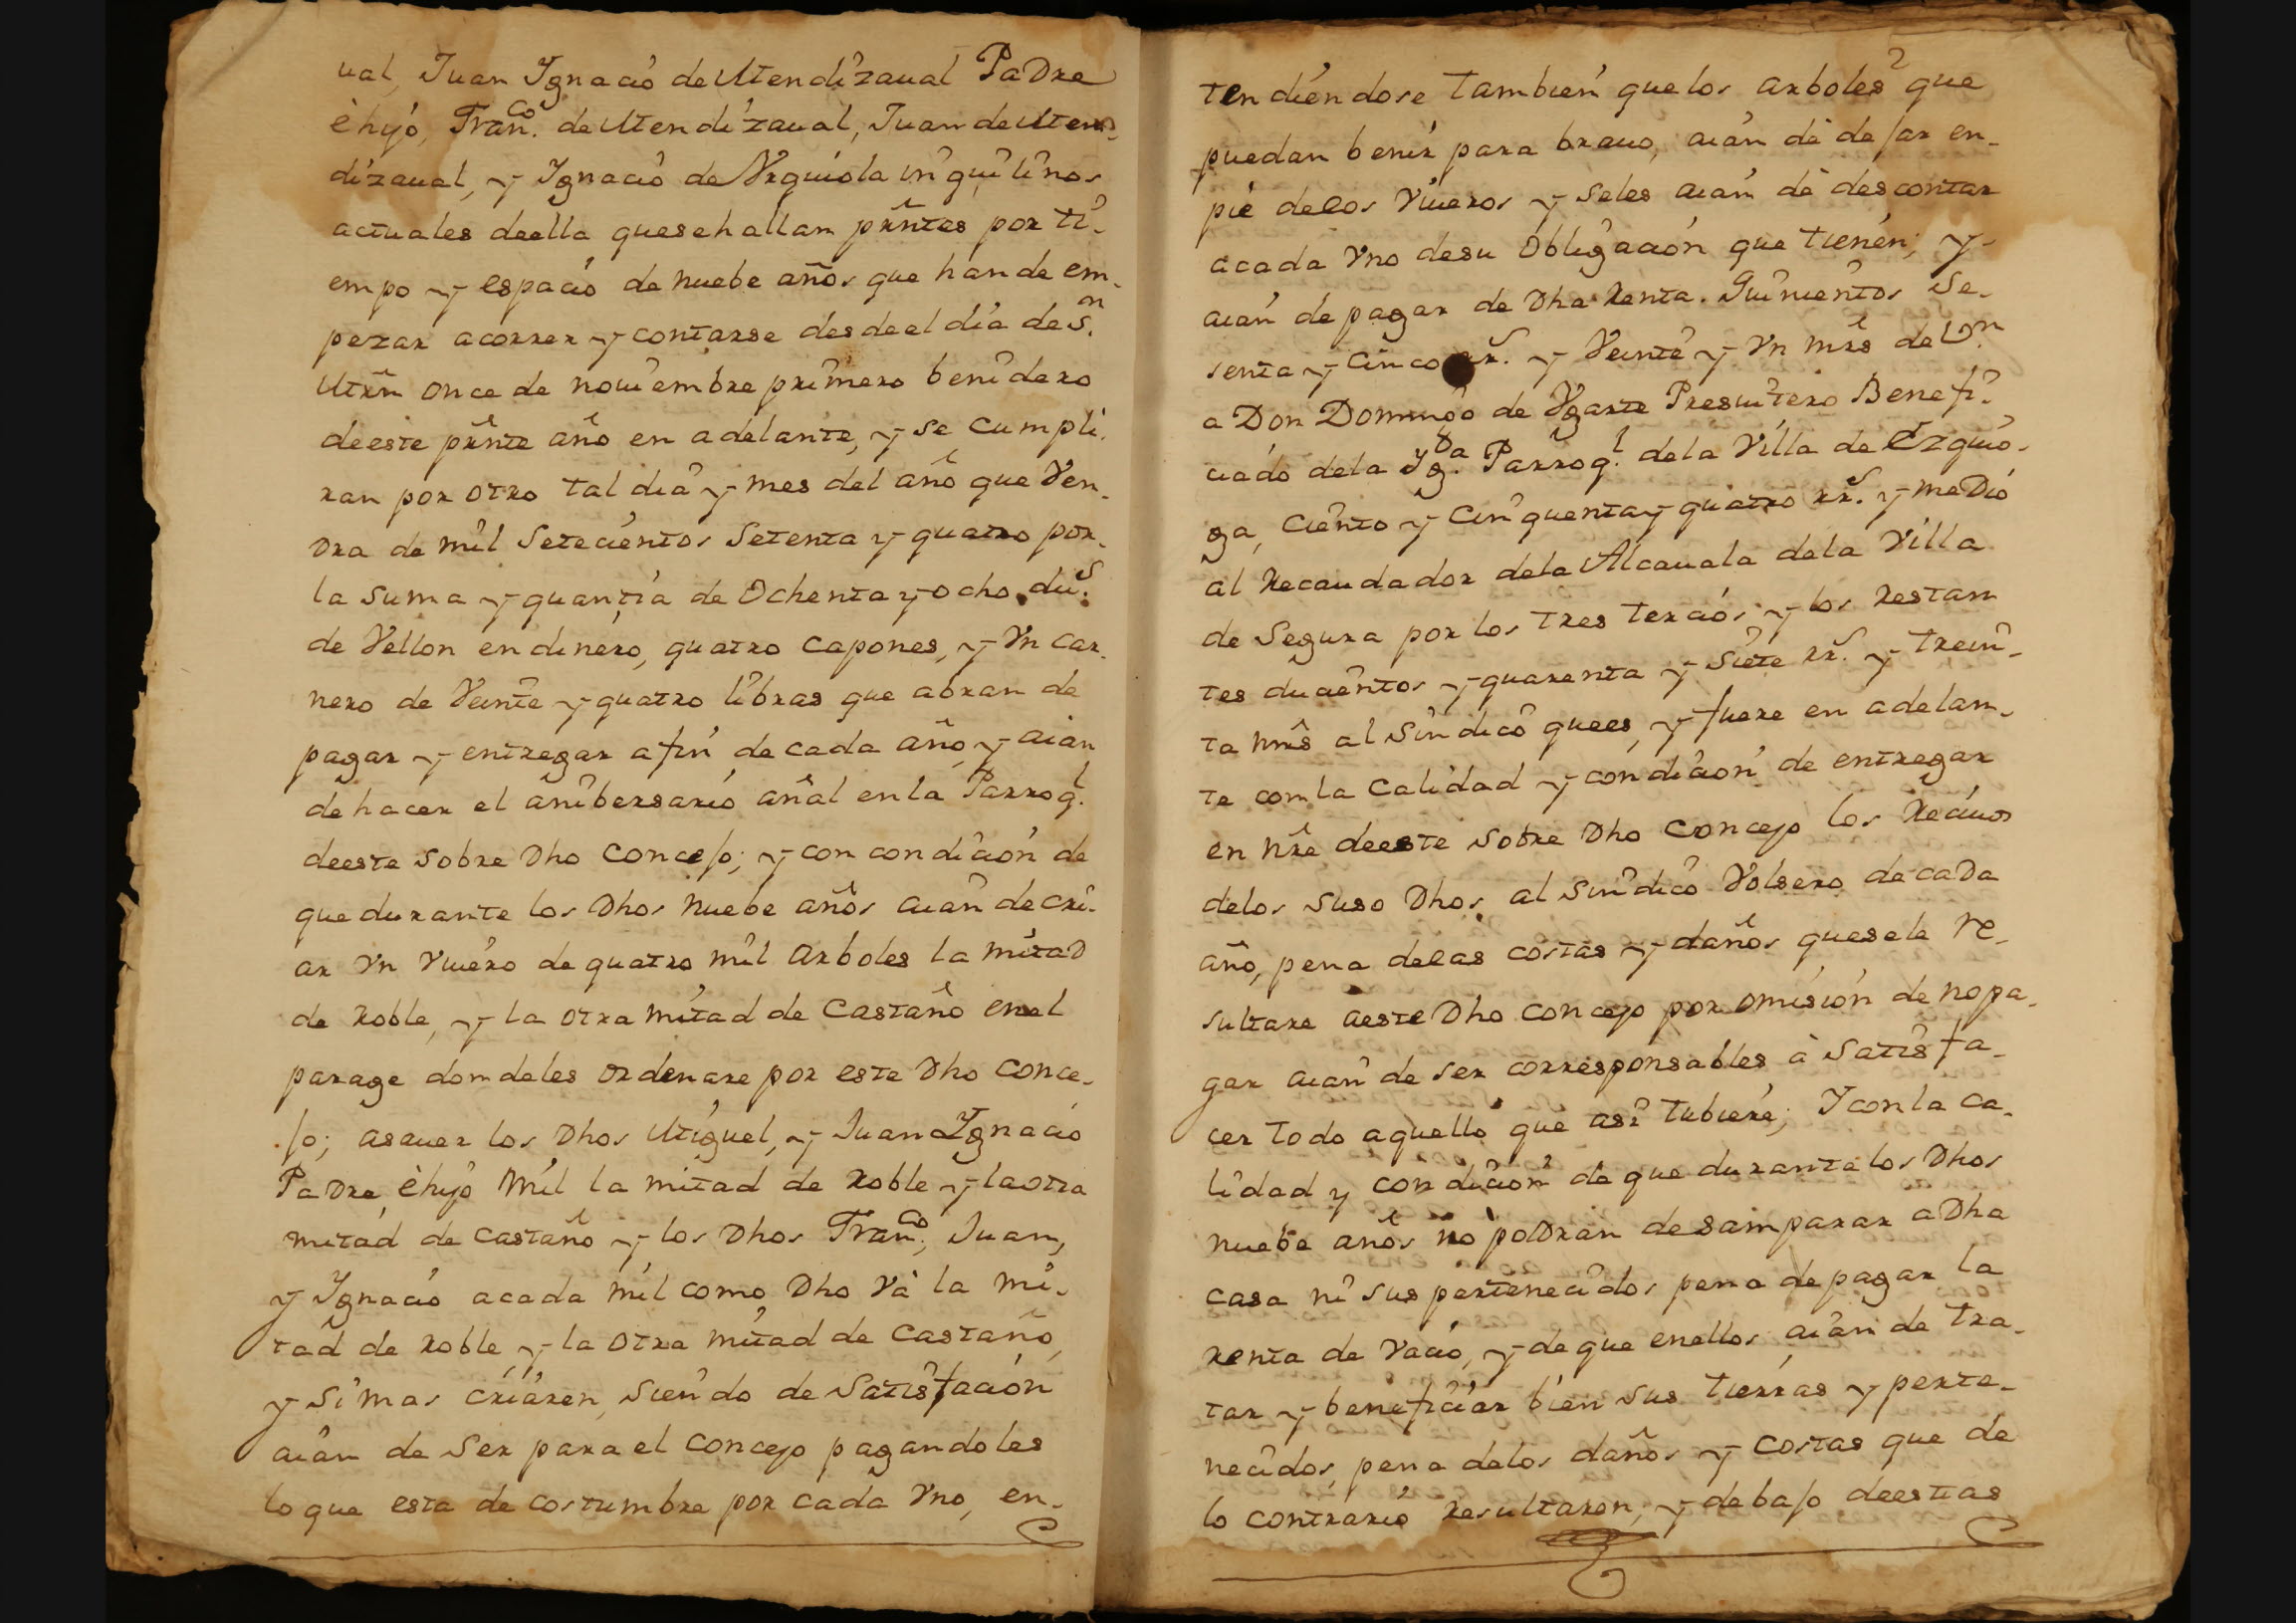 ual, Juan Ygnacio de Mendizaual Padre
è hijo, Franco. de Mendizaual, Juan de Men-
dizaual, y Ygnacio de Vrquiola inquilinos
actuales deella quesehallan pñtes por ti-
empo y espacio de nuebe años que han de em-
pezar acorrer y contarse desde el dia de Sn.
Mrñ once de nouiembre primero benidero
deeste pñte año en adelante, y se cumpli-
ran por otro tal dia y mes del año que Ven-
dra de mil Setecientos Setenta y quatro por
la suma y quantia de Ochenta y ocho dus.
de Vellon en dinero, quatro Capones, y Vn Car-
nero de Veinte y quatro libras que abran de
pagar y entregar afin de cada año, y aian
de hacer el anibersario añal en la Parroql.
deeste sobre Dho Concejo; y con condicion de
que durante los Dhos nuebe años aian de cri-
ar Vn Viuero de quatro mil Arboles la mitad
de Roble, y la otra mitad de Castaño en el
parage dondeles ordenare por este Dho Conce-
jo; asauer los Dhos Miguel, y Juan Ygnacio
Padre, è hijo Mil la mitad de Roble y la otra
mitad de castaño y los Dhos Franco., Juan,
y Ygnacio acada mil como Dho Và la mi-
tad de Roble, y la otra mitad de Castaño,
y Si mas criaren, siendo de Satisfacion
aian de Ser para el Concejo pagandoles
lo que esta de costumbre por cada Vno, en-
tendiendose tambien que los arboles que
puedan benir para brauo, aian de dejar en-
pie delos Viueros y seles aian de descontar
acada Vno desu Obligacion que tienen; y
aian de pagar de Dha Renta. Quinientos Se-
senta y Cinco rrs. y Veinte y Vn mrs de Vn.
a Don Domingo de Ygarte Presuitero Benefi-
ciado dela Yga. Parroql. dela Villa de Ezquio-
ga, Ciento y Cinquenta y quatro rrs. y medio
al Recaudador dela Alcauala dela Villa
de Segura por los tres tercios y los Restan
tes ducientos y quarenta y Siete rrs. y trein-
ta mrs al Sindico quees, y fuere en adelan-
te con la Calidad y condicion de entregar
en nre deeste sobre Dho Concejo los Reciuos
delos suso Dhos al sindico Volsero de cada
año, pena delas costas y daños quesele re-
sultare aeste Dho Concejo por omision de nopa-
gar aian de ser corresponsables à Satisfa-
cer todo aquello que asi tubiere; Y con la ca-
lidad y condicion de que durante los Dhos
nuebe años no podran desamparar a Dha
casa ni sus pertenecidos pena de pagar la
renta de Vacio, y de que enellos aian de tra-
tar y beneficiar bien sus tierras y perte-
necidos, pena delos daños y costas que de
lo contrario Resultaren; y debajo deestas